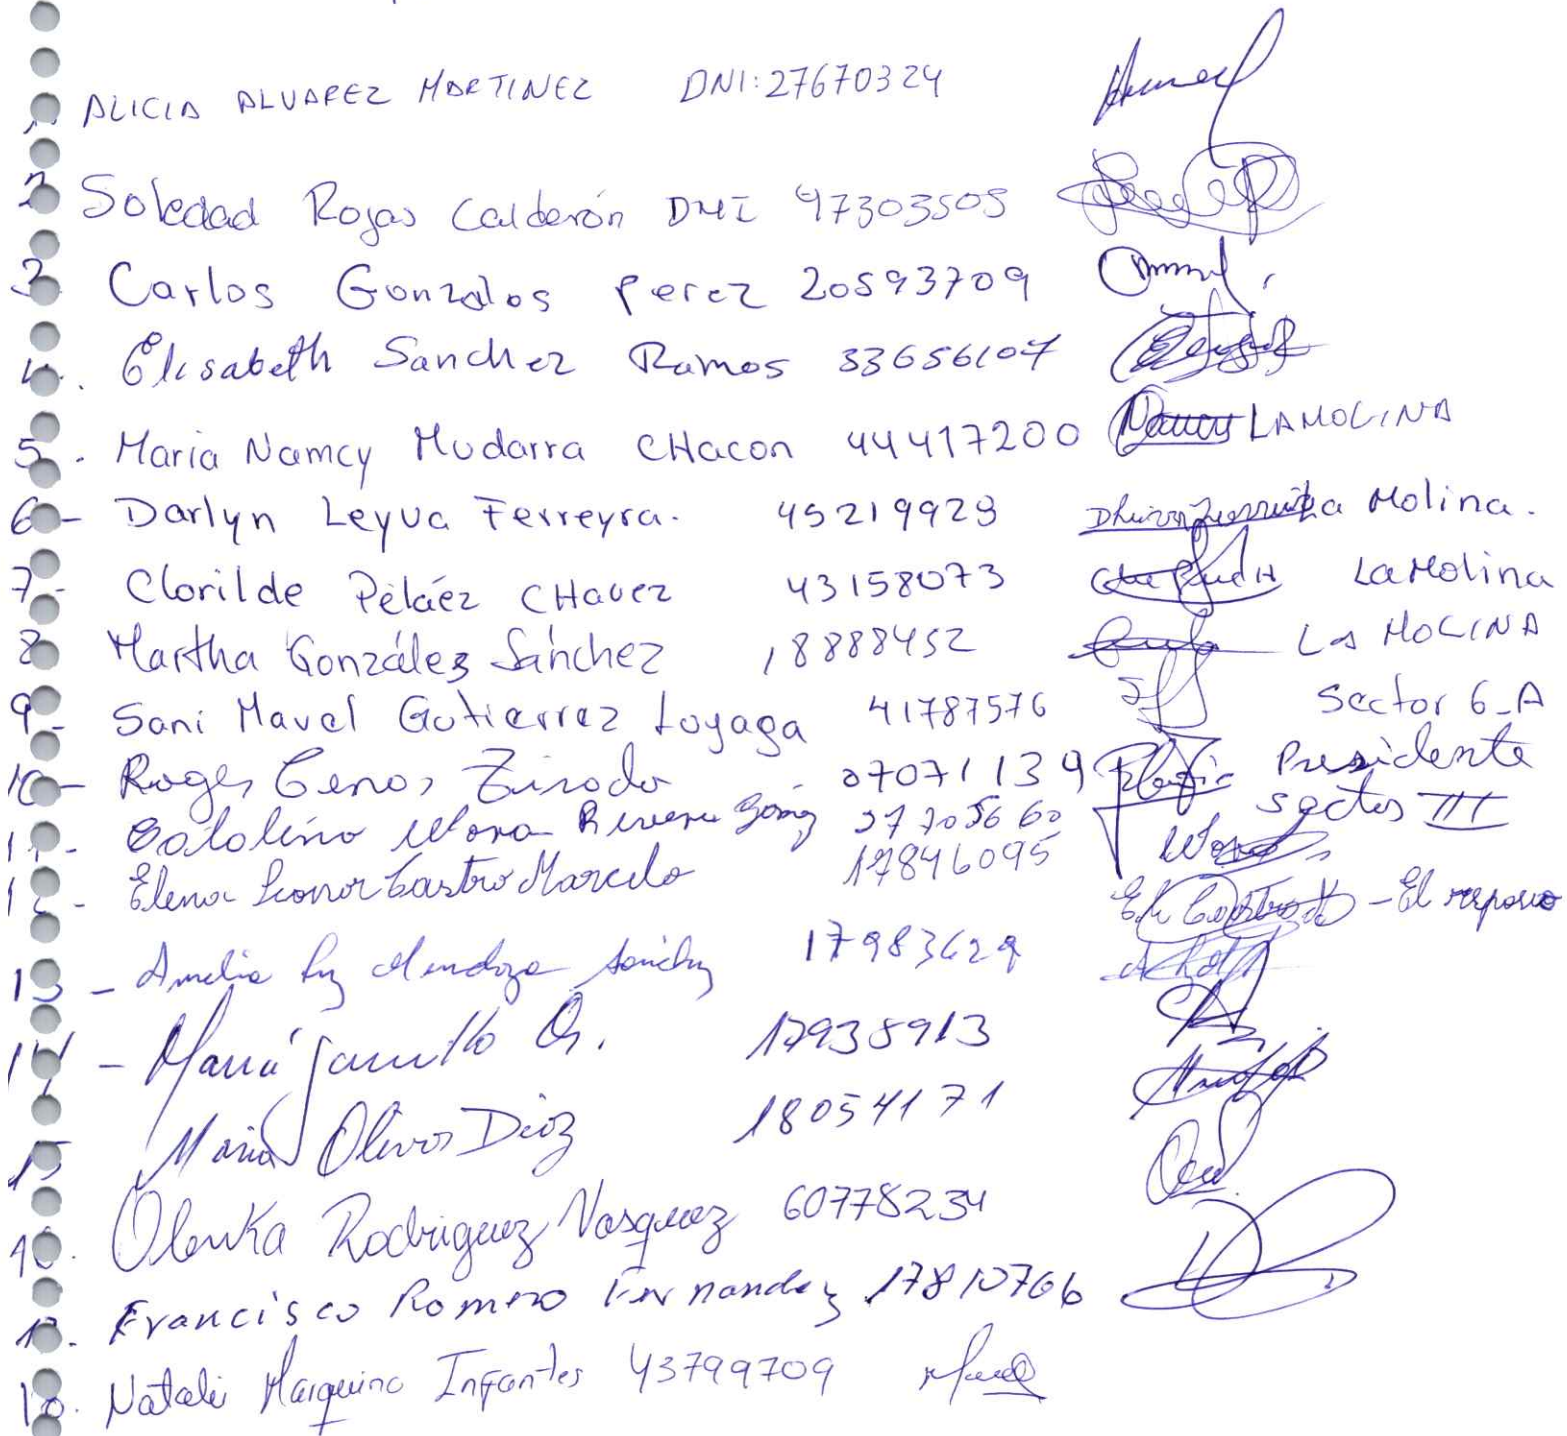 1. ALICIA ALVAREZ MARTINEZ DNI: 27670324
2 Soledad Rojas Calderón DNI 47303505
3 Carlos Gonzalos perez 20593709
4. Elisabeth Sanchez Ramos 33656107
5. Maria Namcy Mudarra CHacon 44417200 LA MOLINA
6- Darlyn Leyva Ferreyra. 45219929 La Molina.
7- Clorilde Peláez CHavez 43158073 La Molina
8 Martha González Sánchez 18888452 LA MOLINA
9- Sani Mavel Gutierrez Loyaga 41787576 Sector 6-A
10- Roger 07071139 Presidente
sector III
11- Mora Rivera 27705660
12- Elena Leonor Castro Marcelo 17846095 - El reposo
13- Amelia Luz Mendoza Sánchez 17983629
14- María Jaramillo O. 17938913
15 Maria Olivos Diaz 18054171
16. Olenka Rodriguez Vasquez 60778234
17. Francisco Romero Fernandez 17810766
18. Natali Marquina Infantes 43799709